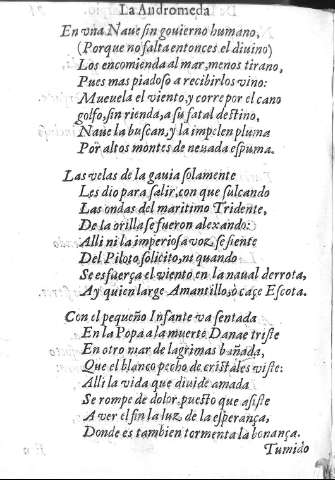 La Andromeda
En vna Naue ſin gouierno humano,
(Porque no falta entonces el diuino)
Los encomienda al mar, menos tirano,
Pues mas piadoſo a recibirlos vino:
Mueuela el viento, y corre por el cano
golfo, ſin rienda, a ſu fatal deſtino,
Naue la buſcan, y la impelen pluma
Por altos montes de neuada eſpuma.
Las velas de la gauia ſolamente
Les dio para ſalir, con que ſulcando
Las ondas del maritimo Tridente,
De la orilla ſe fueron alexando:
Alli ni la imperioſa voz ſe ſiente
Del Piloto ſolicito, ni quando
Se esfuerça el viento en la naual derrota,
Ay quien large Amantillo, ò caçe Eſcota.
Con el pequeño Infante va ſentada
En la Popa a la muerte Danae triſte
En otro mar de lagrimas bañada,
Que el blanco pecho de criſtales viſte:
Alli la vida que diuide amada
Se rompe de dolor, pueſto que aſiſte
A ver el fin la luz de la eſperança,
Donde es tambien tormenta la bonança.
Tumido